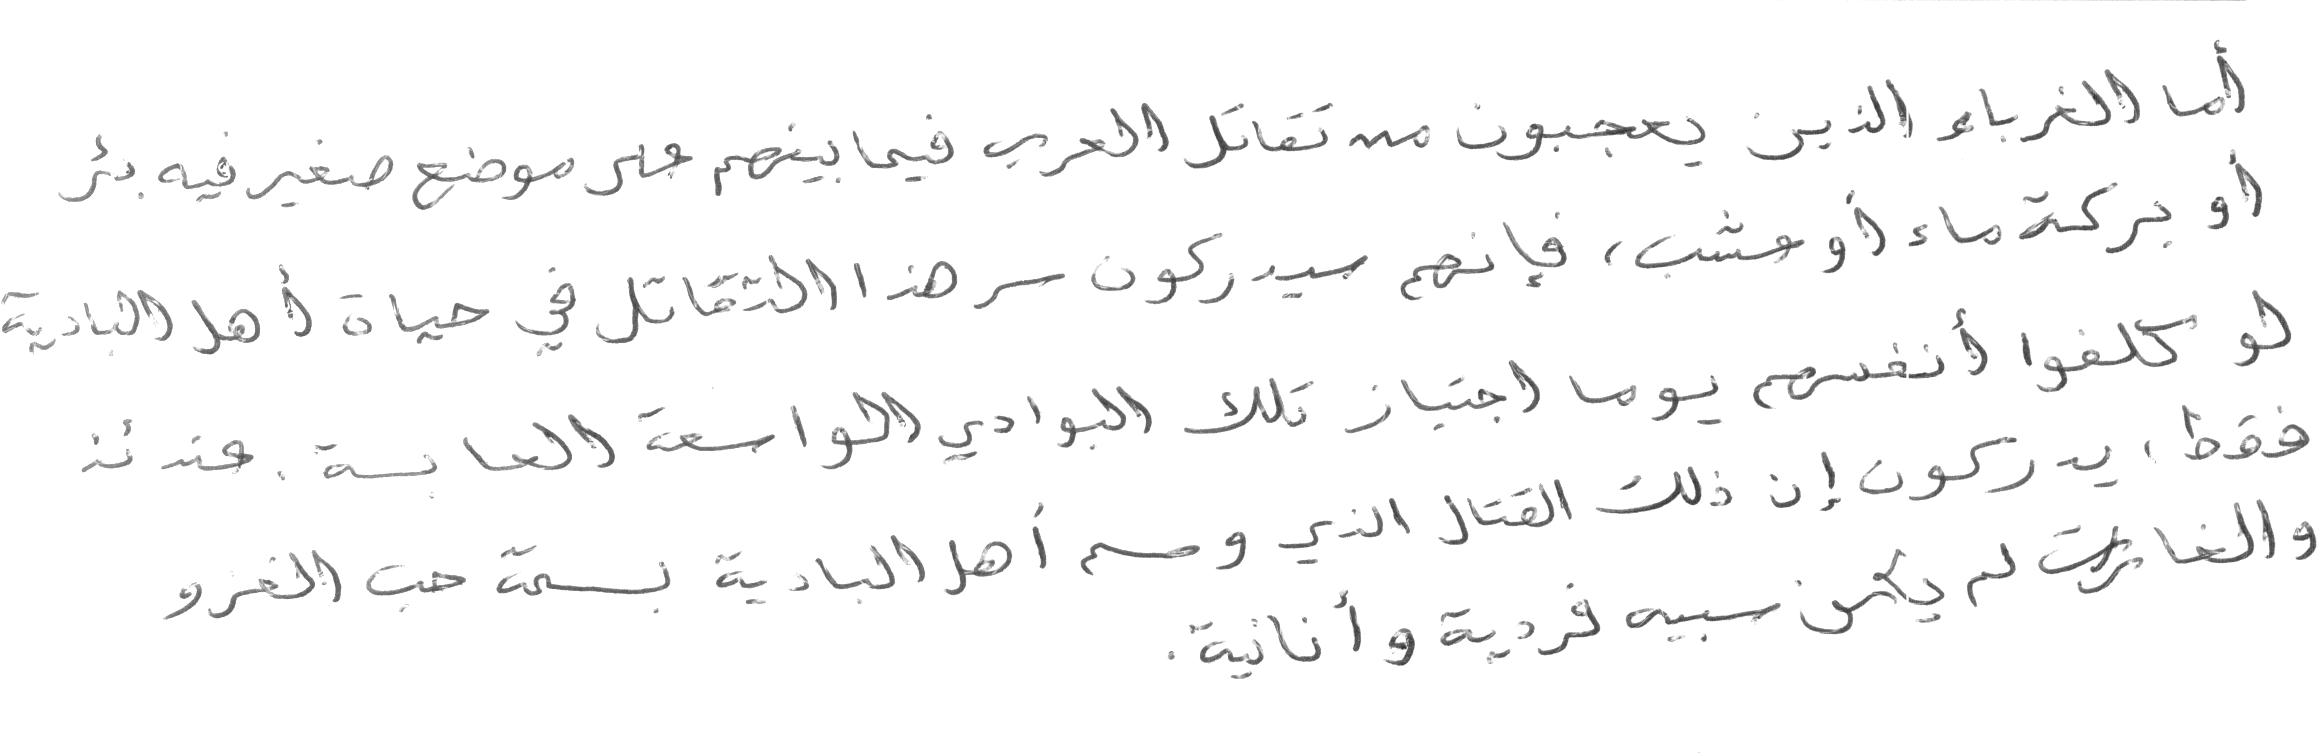 أما الغرباء الذين يعجبون من تقاتل العرب فيما بينهم على موضع صغير فيه بئر
أو بركة ماء أو عشب، فإنهم سيدركون سر هذا التقاتل في حياة أهل البادية
لو كلفوا أنفسهم يوما اجتياز تلك البوادي الواسعة العابسة. عندئذ
فقط، يدركون إن ذلك القتال الذي وسم أهل البادية بسمة حب الغزو
والغارات لم يكن سببه فردية وأنانية.